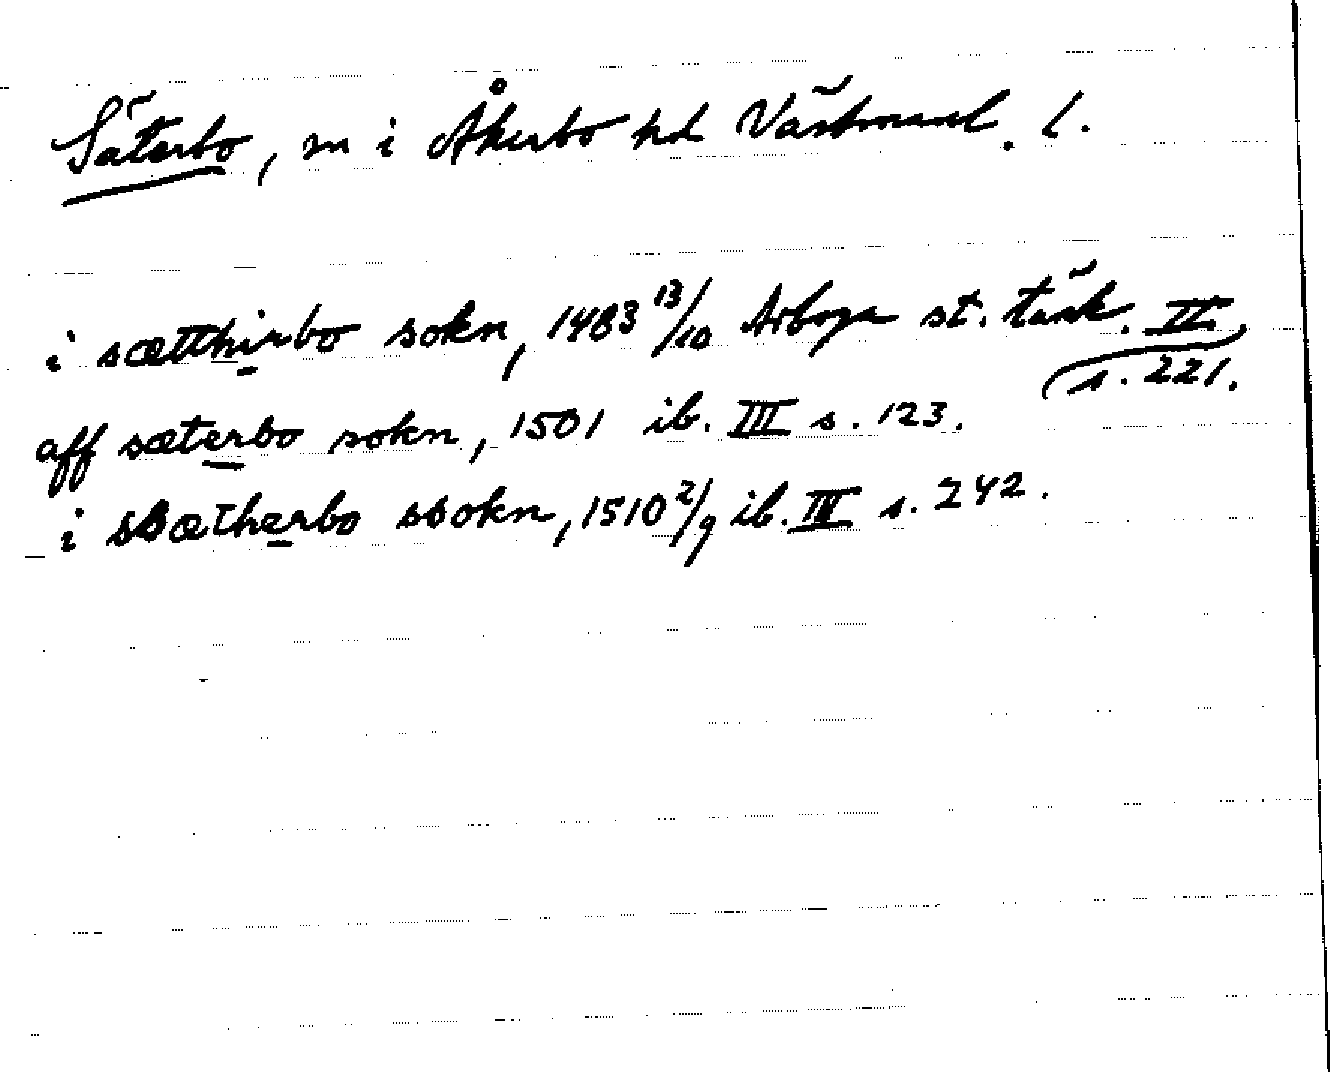 Säterbo, sn i Åkerbo hd Västmanl. l.
i sætthirbo sokn, 1483 13/10 Arboga st. tänk. II
s. 221.
aff sæterbo sokn, 1501 ib. III s. 123.
i sæætherbo sokn, 1510 2/9 ib. III s. 242.